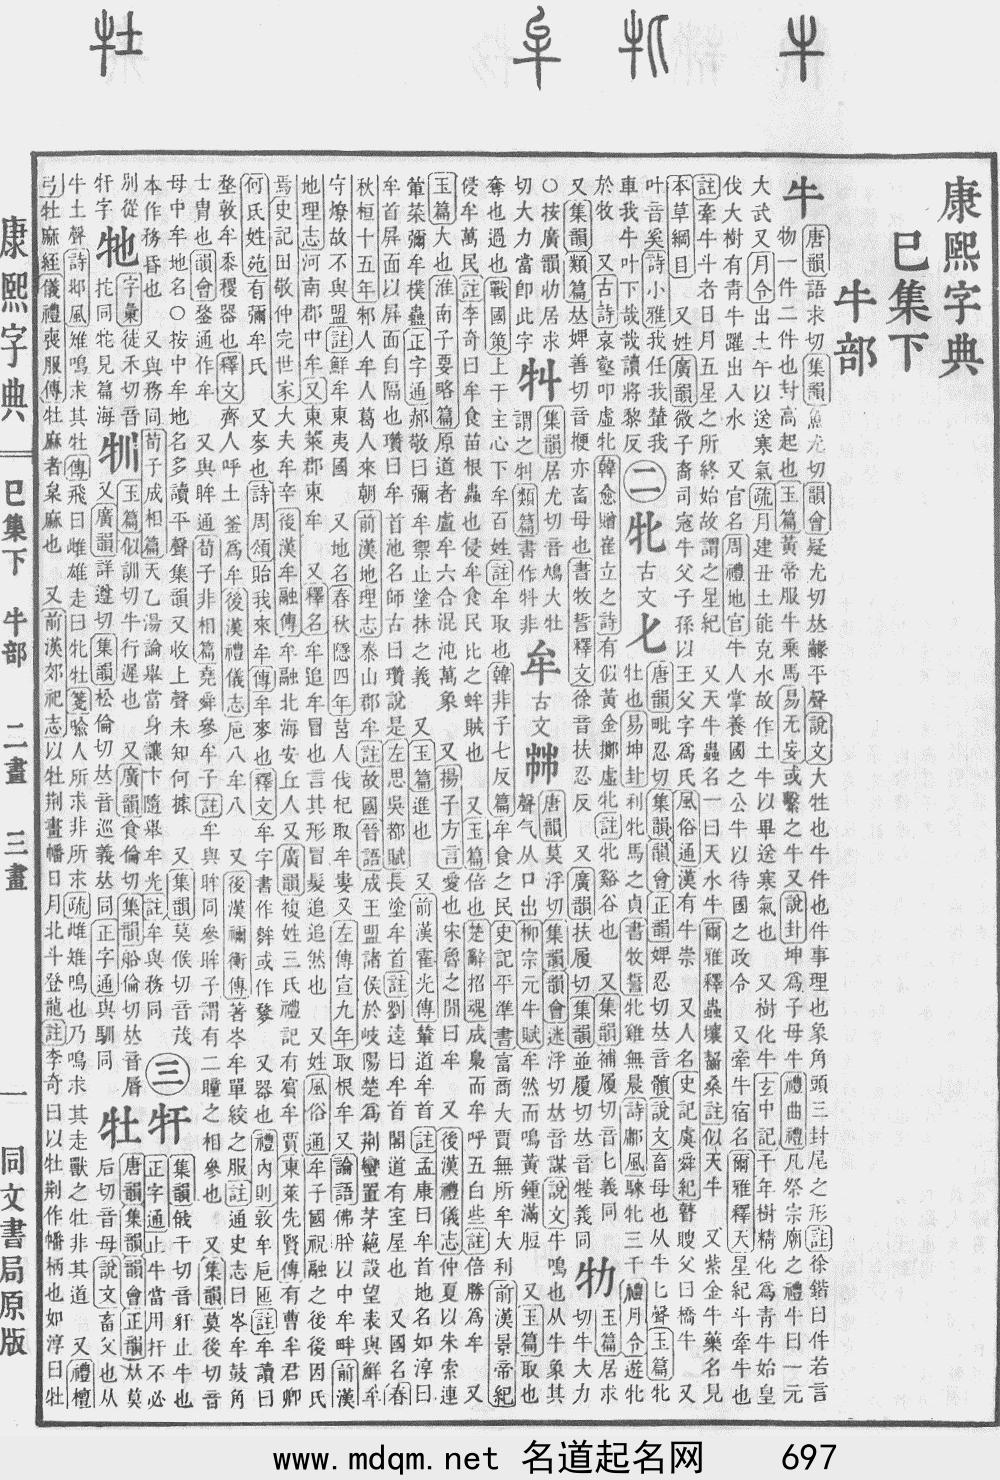 康熙字典
巳集下
牛部
牛 唐韻語求切集韻魚尤切韻會疑尤切𠀤平聲說文大牲也牛件也件事理也象角頭三封尾之形註徐鍇曰件若言
物一件二件也封高起也玉篇黃帝服牛乘馬易无妄或繫之牛又說卦坤爲子母牛禮曲禮凡祭宗廟之禮牛曰一元
大武又月令出土牛以送寒氣疏月建丑土能克水故作土牛以畢送寒氣也 又樹化牛玄中記千年樹精化爲青牛始皇
伐大樹有青牛躍出入水 又官名周禮地官牛人掌養國之公牛以待國之政令 又牽牛宿名爾雅釋天星紀斗牽牛也
註牽牛斗者日月五星之所終始故謂之星紀 又天牛蟲名一曰天水牛爾雅釋蟲蠰齧桑註似天牛 又紫金牛藥名見
本草綱目 又姓廣韻微子裔司寇牛父子孫以王父字爲氏風俗通漢有牛崇 又人名史記虞舜紀瞽瞍父曰橋牛 又
叶音奚詩小雅我任我輦我
車我牛叶下哉哉讀將黎反
二
牝 古文 𠤎 唐韻毗忍切集韻韻會正韻婢忍切𠀤音髕說文畜母也从牛匕聲玉篇牝
牡也易坤卦利牝馬之貞書牧誓牝雞無晨詩鄘風騋牝三千禮月令遊牝
於牧 又古詩哀壑叩虛牝韓愈贈崔立之詩有似黃金擲虛牝註牝谿谷也 又集韻補履切音匕義同
又集韻類篇𠀤婢善切音楩亦畜母也書牧誓釋文徐音扶忍反 又廣韻扶履切集韻並履切𠀤音牪義同
牞 玉篇居求
切牛大力
○按廣韻牞居求
切大力當卽此字
牪 集韻居尤切音鳩大牡
謂之牪類篇書作牪非
牟 古文 唐韻莫浮切集韻韻會迷浮切𠀤音謀說文牛鳴也从牛象其
聲气从口出柳宗元牛賦牟然而鳴黃鍾滿脰 又玉篇取也
奪也過也戰國策上干主心下牟百姓註牟取也韓非子七反篇牟食之民史記平準書富商大賈無所牟大利前漢景帝紀
侵牟萬民註李奇曰牟食苗根蟲也侵牟食民比之蛑賊也 又玉篇倍也楚辭招魂成梟而牟呼五白些註倍勝爲牟 又
玉篇大也淮南子要略篇原道者盧牟六合混沌萬象 又揚子方言愛也宋魯之閒曰牟 又後漢禮儀志仲夏以朱索連
葷菜彌牟樸蠱正字通郝敬曰彌牟禦止塗抹之義 又玉篇進也 又前漢霍光傳輦道牟首註孟康曰牟首地名如淳曰
牟首屏面以屏面自隔也瓚曰牟首池名師古曰瓚說是左思吳都賦長塗牟首註劉逵曰牟首閣道有室屋也 又國名春
秋桓十五年邾人牟人葛人來朝前漢地理志泰山郡牟註故國晉語成王盟諸侯於岐陽楚爲荆蠻置茅蕝設望表與鮮牟
守燎故不與盟註鮮牟東夷國 又地名春秋隱四年莒人伐杞取牟婁又左傳宣九年取根牟又論語佛肸以中牟畔前漢
地理志河南郡中牟又東萊郡東牟 又釋名牟追牟冒也言其形冒髮追追然也 又姓風俗通牟子國祝融之後後因氏
焉史記田敬仲完世家大夫牟辛後漢牟融傳牟融北海安丘人又廣韻複姓三氏禮記有賓牟賈東萊先賢傳有曹牟君卿
何氏姓苑有彌牟氏 又麥也詩周頌貽我來牟傳牟麥也釋文牟字書作麰或作䴾 又器也禮內則敦牟卮匜註牟讀曰
堥敦牟黍稷器也釋文齊人呼土釜爲牟後漢禮儀志卮八牟八 又後漢禰衡傳著岑牟單絞之服註通史志曰岑牟鼓角
士冑也韻會鍪通作牟 又與眸通荀子非相篇堯舜參牟子註牟與眸同參眸子謂有二瞳之相參也 又集韻莫後切音
母中牟地名○按中牟地名多讀平聲集韻又收上聲未知何據 又集韻莫候切音茂
本作務昏也 又與務同荀子成相篇天乙湯論舉當身讓卞隨舉牟光註牟與務同
三
牪 集韻俄干切音豻止牛也
正字通止牛當用扞不必
別從牛作
牠 字彙徒禾切音
㸰同牠見篇海
牣 玉篇似訓切牛行遲也 又廣韻食倫切集韻船倫切𠀤音脣
又廣韻詳遵切集韻松倫切𠀤音巡義𠀤同正字通與馴同
牡 唐韻集韻韻會正韻𠀤莫
后切音母說文畜父也从
牛土聲詩邶風雉鳴求其牡傳飛曰雌雄走曰牝牡箋喻人所求非所求疏雌雉鳴也乃鳴求其走獸之牡非其道 又禮檀
弓牡麻絰儀禮喪服傳牡麻者枲麻也 又前漢郊祀志以牡荆畫幡日月北斗登龍註李奇曰以牡荆作幡柄也如淳曰牡
康熙字典 巳集下 牛部 二畫 三畫 一 同文書局原版
www.mdqm.net 名道起名网 697